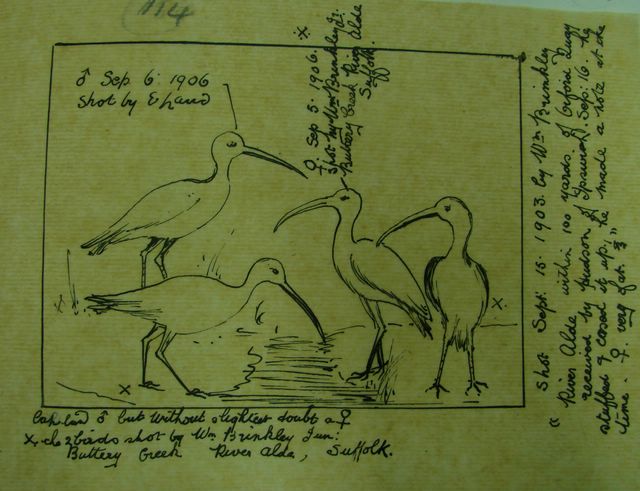 114
♂ Sep 6. 1906
Shot by E Land
♀. Sep. 5. 1906. ※
Shot by Wm Brinkley Jr.
Buttery Creek River Alde
Suffolk.
Shot Sept: 15. 1903. by Wm Brinkley
"River Alde within 100 yards of Orford Quay
received by Hudson of Ipswich. Sep: 16. He
stuffed & cased it up, he made a note at the
time. ♀. very fat."
X
X.
X
♂ but without slightest doubt a ♀
X. the 2 birds shot by Wm Brinkley Jun:
Buttery Creek River Alde, Suffolk.